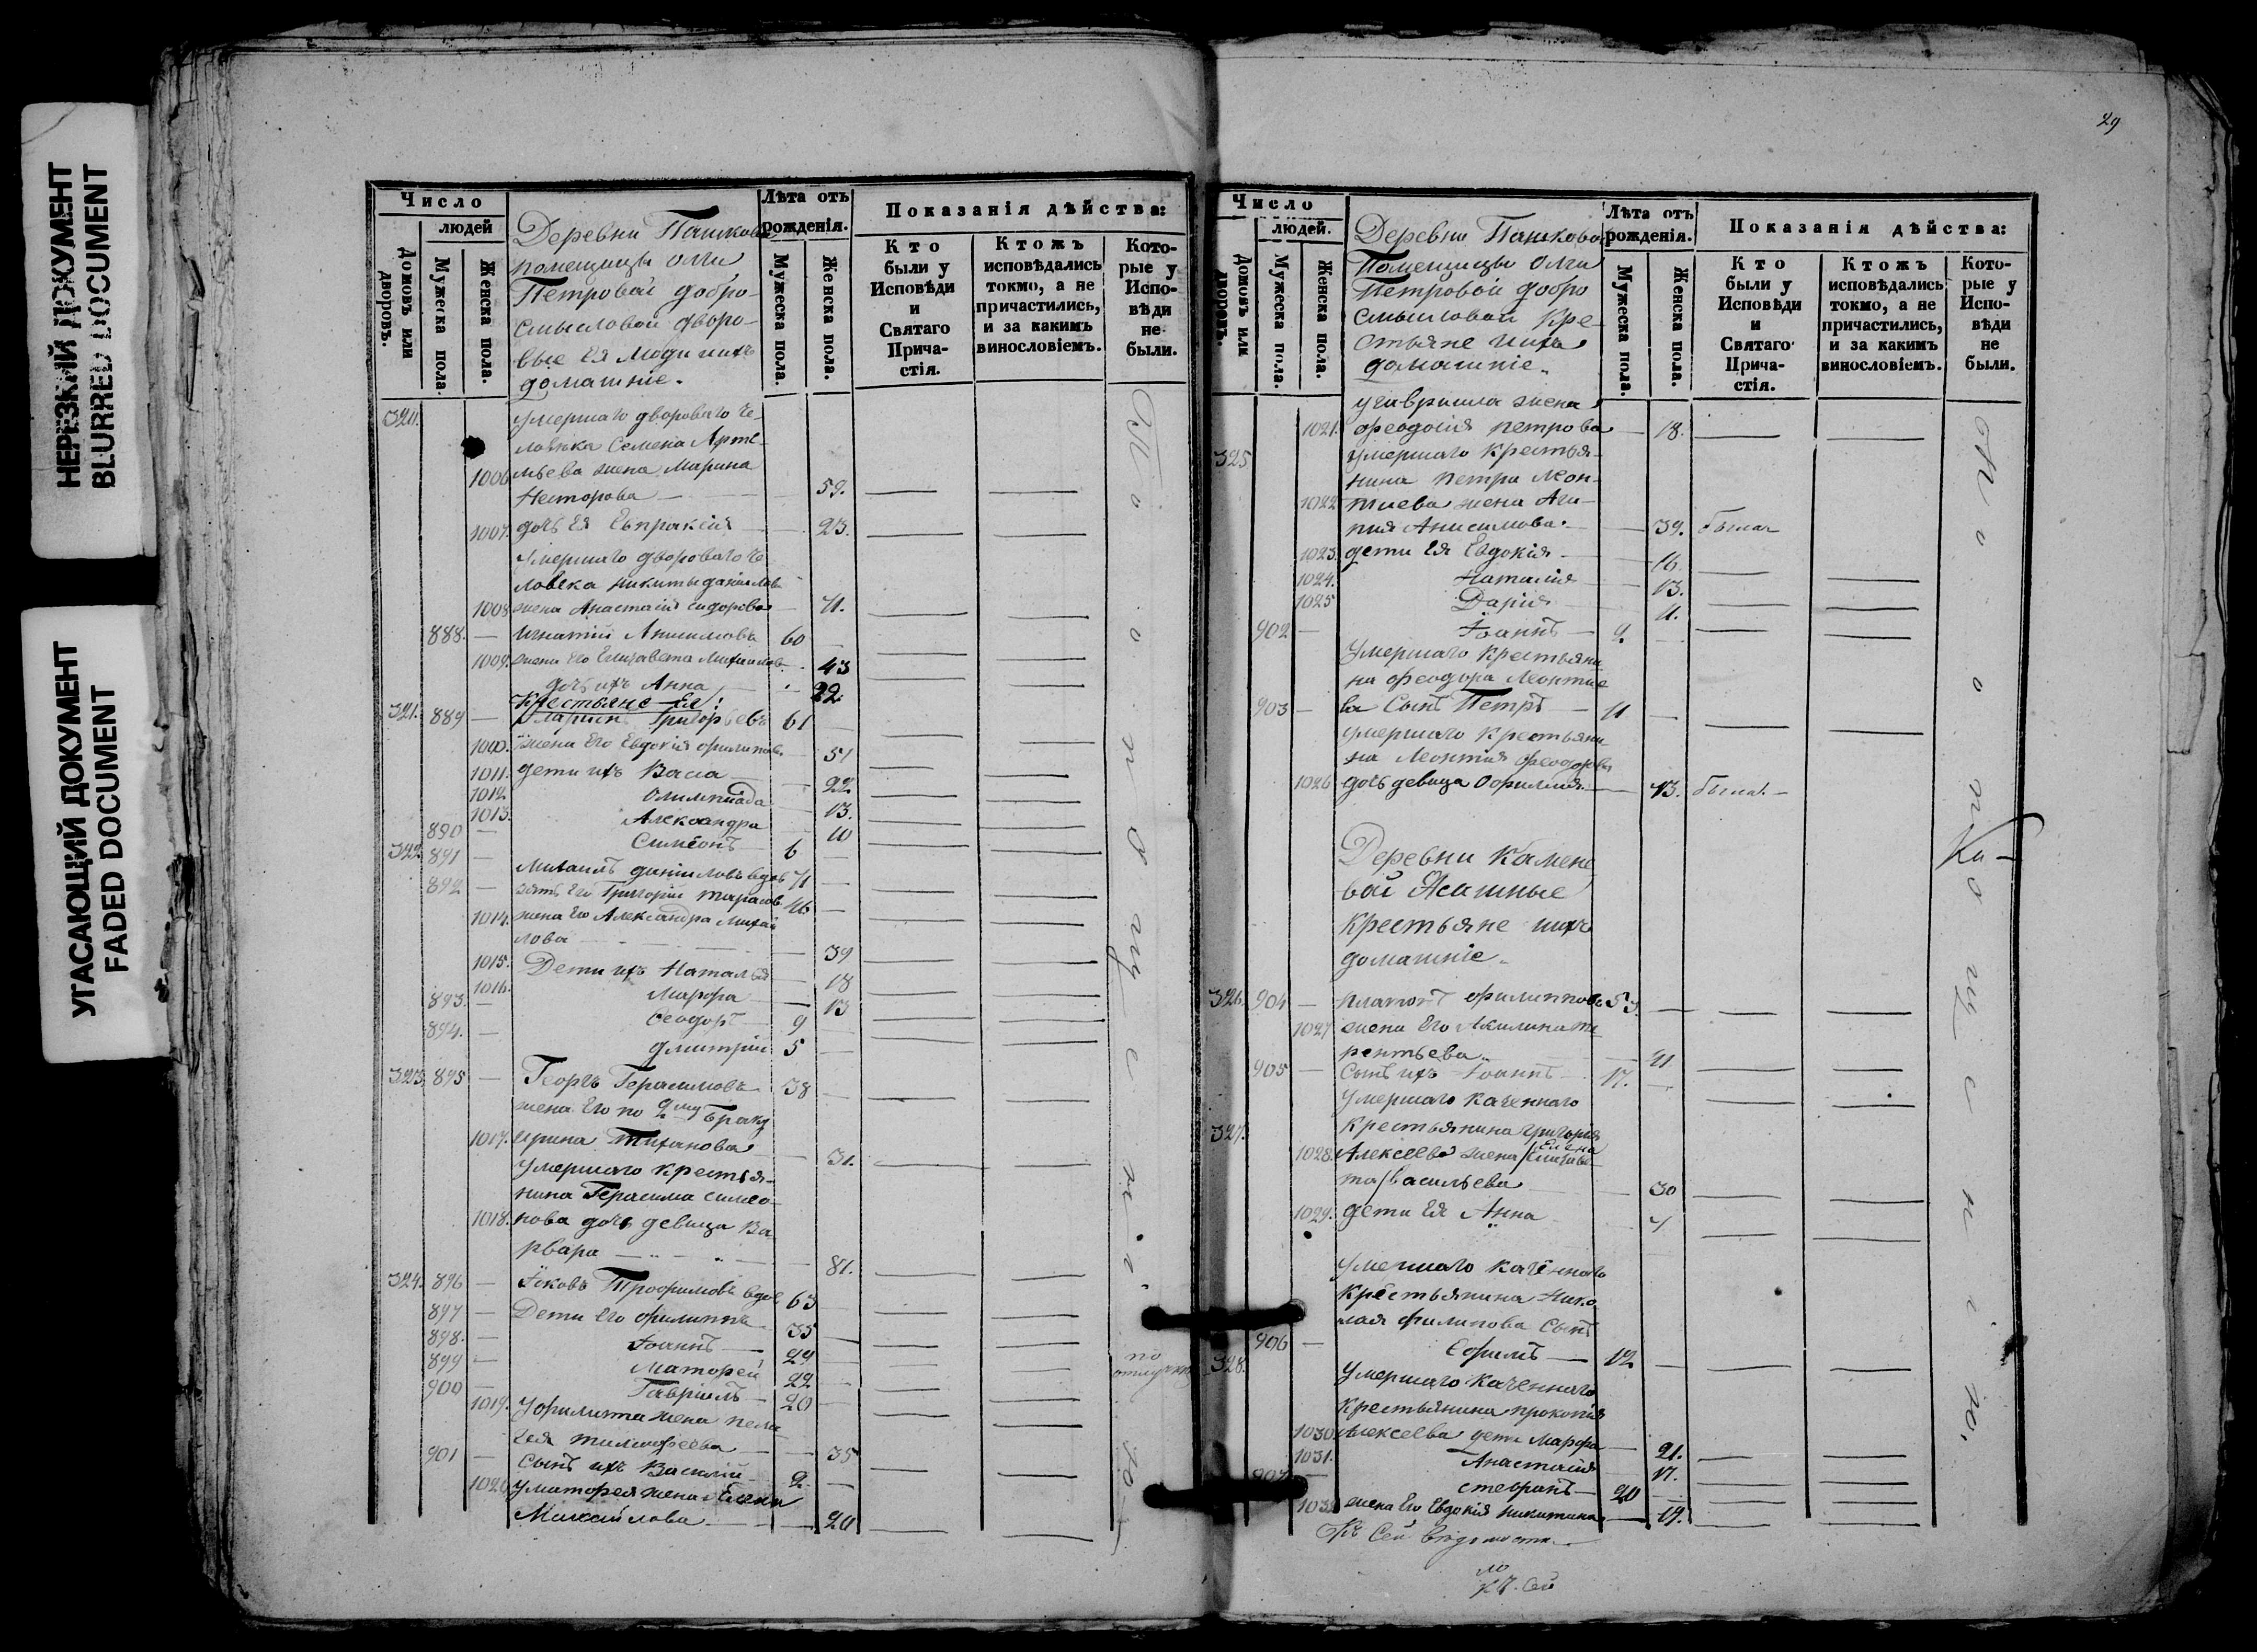 НЕРЕЗКИЙ ДОКУМЕНТ
BLURRED DOCUMENT
УГАСАЮЩИЙ ДОКУМЕНТ
FADED DOCUMENT
Число
людей
Домовъ или дворовъ.
Мужеска пола.
Женска пола.
Деревни Пашковой
помещицы Олги
Петровой добро-
смысловой дворо-
вые Ея люди ихъ
домашніе.
Лѣта отъ рожденія.
Мужеска пола.
Женска пола.
Показанія дѣйства:
Кто были у Исповѣди и Святаго Прича-стія.
Ктожъ исповѣдались токмо, а не причастились, и за какимъ винословіемъ.
Кото-рые у Испо-вѣди не были.
умершаго двороваго че-
ловѣка Семена Арте-
1006 мьева жена Марина
Несторова — 59.
1007. дочь Ея Евпраксія — 23.
умершаго двороваго че
ловека Никиты
1008 жена Анастасія Сидорова — 71.
888. — Игнатій Анисимовъ 60
1009. жена Его Елисавета 43
дочь ихъ Анна 22
Крестьяне Ея:
321. 889 — Григорьевъ 61
жена Его Евдокія Филипова 51
1011. дети ихъ Васса 22
1012 Олимпиада 13.
1013. Александра 10
890 — Симеонъ 6
322. 891 — Михаилъ вдов 71
892 — зять Его Григорій Тарасов 46
1014. жена Его Александра Михай
лова 39
1015. Дети ихъ Наталья 18
1016. Марфа 13
893. — Феодоръ 9
894. — Дмитрій 5
323. 895 — Герасимовъ 38
жена Его по 2му браку
1017. Ирина Тиханова 31.
умершаго крестья-
нина Герасима Симео-
1018. нова дочь девица Ва
рвара 81.
324. 896 — Іаковъ Трофимовъ вдов 63
897 — Дети Его Филиппъ 35
898. — Іоаннъ 29
899 — Матфей 22
900 — Гавріилъ 20
1019. у Филиппа жена Пела
гея Тимофеева 35
901 — Сынъ ихъ Василій 2
у Матфея жена Елена
Михайлова 20
По опущенію
29
Число
людей.
Домовъ или дворовъ.
Мужеска пола.
Женска пола.
Деревни Пашковой
Помещицы Олги
Петровой добро
смысловой кре-
стьяне ихъ
домашніе.
Лѣта отъ рожденія.
Мужеска пола.
Женска пола.
Показанія дѣйства:
Кто были у Исповѣди и Святаго Прича-стія.
Ктожъ исповѣдались токмо, а не причастились, и за какимъ винословіемъ.
Кото-рые у Испо-вѣди не были.
у Гавриила жена
1021. Феодосія Петрова — 18.
325 умершаго крестья-
нина Петра Леон-
1022 тиева жена Ага-
пия Анисимова. 39. была
1023. дети Ея Евдокія 16.
1024. Наталія 13.
1025 Дарія 11.
902 — Іоаннъ 9.
умершаго крестьяни
на Феодора Леонтие
903 — ва Сынъ Петръ 11
умершаго крестьяни
на Леонтія Феодорова
1026 дочь девица 13. была.
Деревни Камене
вой Ясашные
крестьяне ихъ
домашніе.
326. 904 — Платонъ Филипповъ 53.
1027 жена Его Акилина Те
рентьева 21
905 — Сынъ ихъ Іоаннъ 17.
умершаго казеннаго
327. крестьянина Григорія
1028. Алексеева жена / Елена
Елизаве
та / Васильева 30
1029. дети Ея Анна 7
умершаго казеннаго
крестьянина Нико
лая Филипова Сынъ
906 — Ефимъ — 12
328. умершаго казеннаго
крестьянина Прокопія
1030. Алексеева дети Марфа 21.
1031. Анастасія 17.
907 — Стефанъ 20
жена Его Евдокія Никитина 19.
По опущенію.
Къ сей ведомости